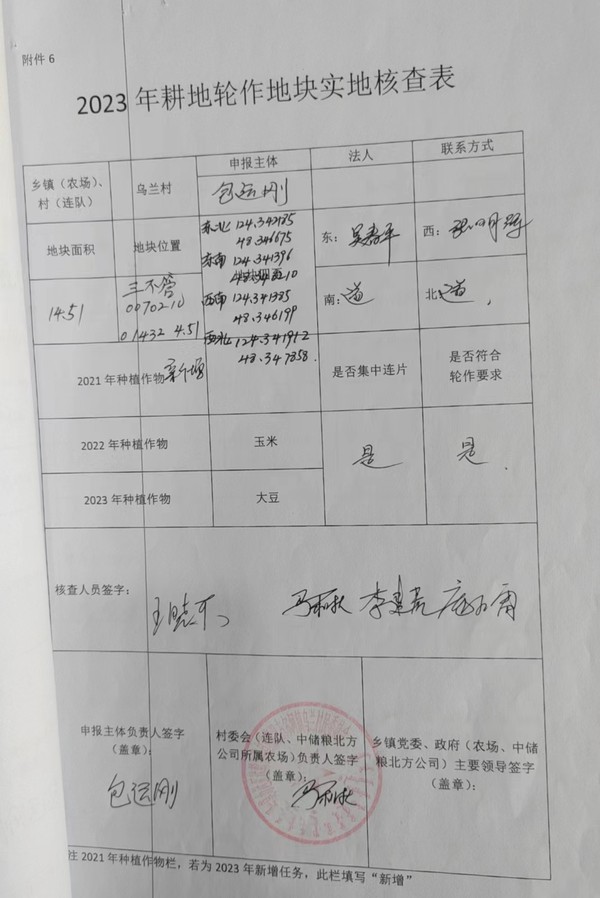 附件 6
2023 年耕地轮作地块实地核查表
乡镇（农场）、村（连队）
乌兰村
申报主体
包运刚
法人
联系方式
地块面积
地块位置
东北 124.342185
48.346675
东南 124.341396
西南 124.341385
48.346199
西北 124.341912
48.347858.
东：吴春平
西：
14.51
三不管
0070210
01432 4.51
南：道
北：道
2021 年种植作物 新增
是否集中连片
是否符合轮作要求
2022 年种植作物
玉米
是
是
2023 年种植作物
大豆
核查人员签字：
王晓东
申报主体负责人签字
（盖章）：
包运刚
村委会（连队、中储粮北方
公司所属农场）负责人签字
（盖章）：
乡镇党委、政府（农场、中储
粮北方公司）主要领导签字
（盖章）：
注 2021 年种植作物栏，若为 2023 年新增任务，此栏填写“新增”